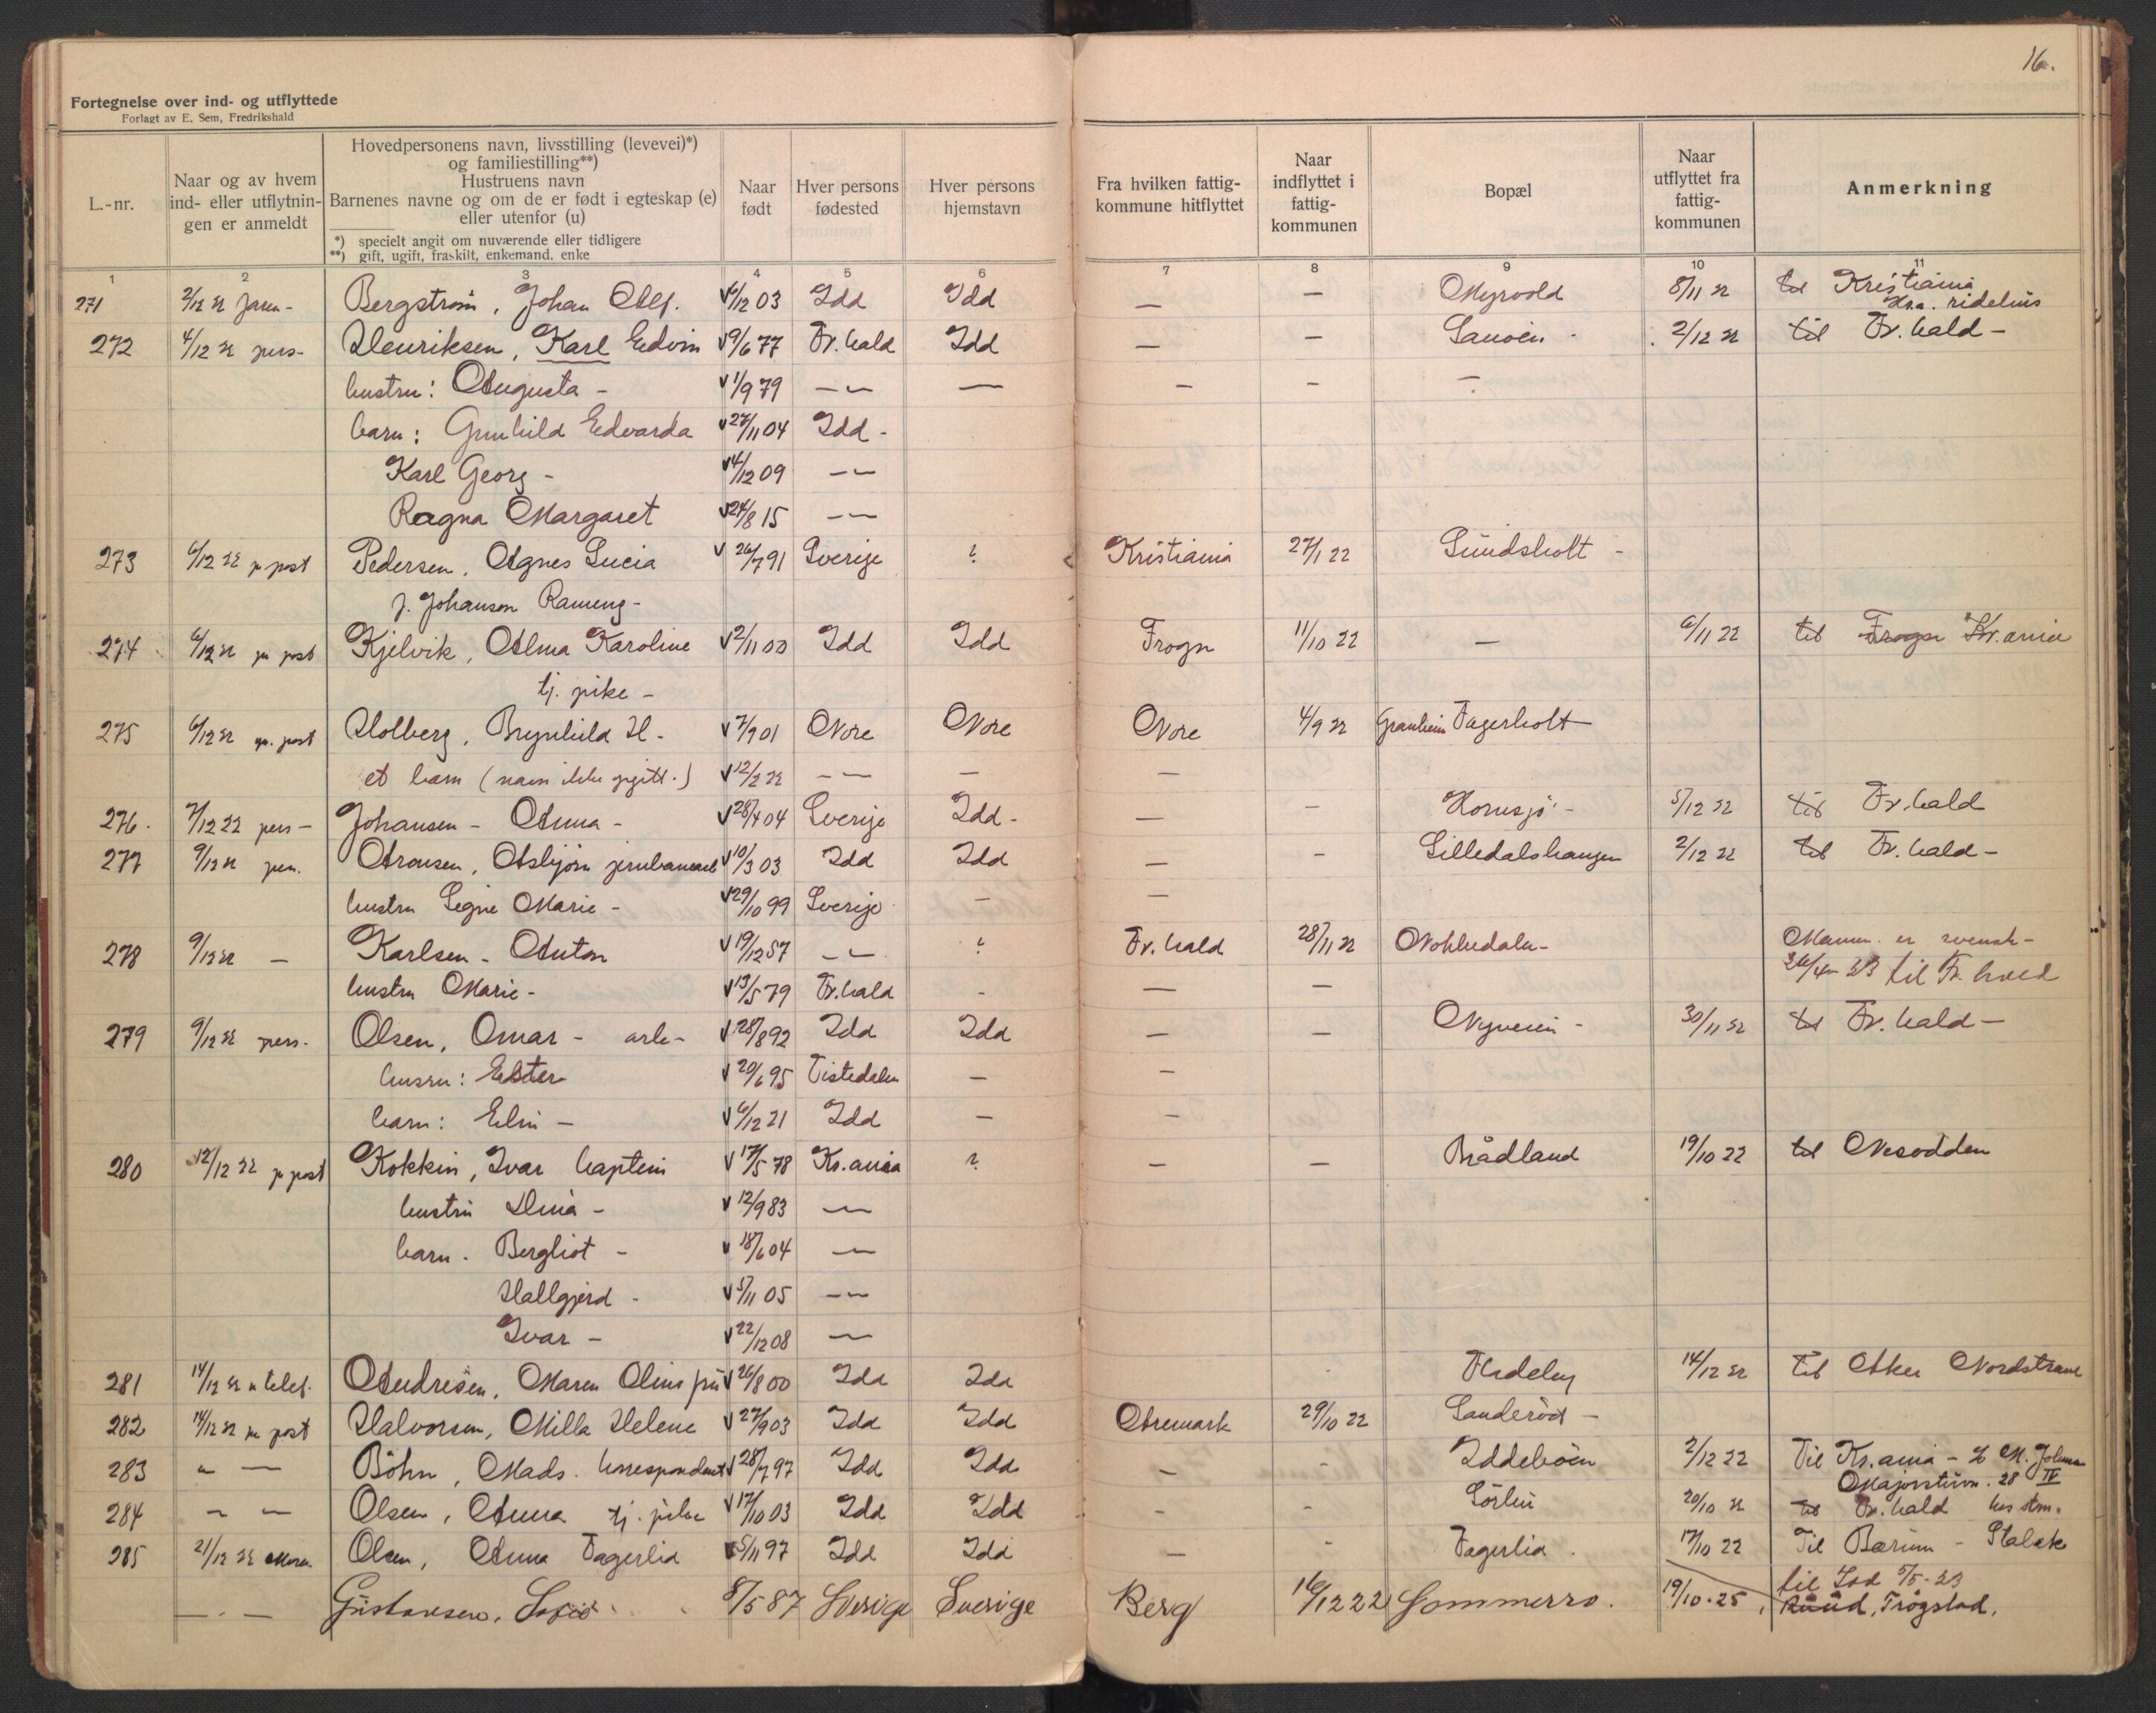 16.
Fortegnelse over ind- og utflyttede
Forlagt av E. Sem, Fredrikshald
L.-nr.
Naar og av hvem ind- eller utflytnin- gen er anmeldt
Hovedpersonens navn, livsstilling (levevei)*)
og familiestilling**)
Hustruens navn
Barnenes navne og om de er født i egteskap (e)
eller utenfor (u)
*) specielt angit om nuværende eller tidligere
**) gift, ugift, fraskilt, enkemand, enke
Naar født
Hver persons fødested
Hver persons hjemstavn
Fra hvilken fattig- kommune hitflyttet
Naar indflyttet i fattig- kommunen
Bopæl
Naar utflyttet fra fattig- kommunen
Anmerkning
1 2 3 4 5 6 7 8 9 10 11
271 2/12 22 Bergström, Johan 03 Idd Idd — — Myrvold 8/11 22 til Kristiania
272 4/12 22 pers- Henriksen, Karl Edvin 9/6 77 Fr.hald Idd — — 2/12 22 til Fr.hald -
hustru: Augusta - 1/9 79 — — — — — —
barn: Gunhild Edvarda 11 04 Idd -
Karl Georg - 4/12 09 — —
Ragna Margaret 24/8 15 — —
273 6/12 22 pr post Pedersen, Agnes Lucia 26/7 91 Sverige ? Kristiania 27/1 22 Sundsholt -
f. Johanson
274 6/12 22 pr post Kjelvik, Alma Karoline 2/11 00 Idd Idd Frogn 11/10 22 — 6/11 22 til Frogn Kr.ania
tj. pike -
275 6/12 22 pr. post Holberg, Brynhild H. 7/9 01 Nore Nore Nore 4/9 22 Granheim Fagerholt
et barn (navn ikke opgitt.) 12/2 22 — — — —
276. 7/12 22 pers - Johansen - Anna - 28/4 04 Sverige Idd - — — Kornsjö - 5/12 22 til Fr.hald
277 9/12 22 pers. Aronsen, Asbjörn jernbanearb 10/3 03 Idd Idd — — Lilledalshaugen 2/12 22 til Fr.hald -
hustru Signe Marie - 29/10 99 Sverige - —
278 9/12 22 — Karlsen - Anton 19/12 57 — — ? Fr.hald 28/11 22 - er svensk -
23 til Fr.hald
hustru Marie - 13/5 79 Fr.hald - — —
279 9/12 22 pers. Olsen, Omar - arb- 28/8 92 Idd Idd — — 30/11 22 til Fr.hald -
Ester 20/6 95 Tistedalen — —
barn: Elin - 6/12 21 Idd — —
280 12/12 22 pr post Kokkin, Ivar kaptein 17/5 78 Kr.ania ? — — Brådland 19/10 22 til Nesodden
hustru Dina - 12/9 83 —
barn. Bergliot - 18/6 04 —
Hallgjerd - 5/11 05 — —
Ivar - 22/12 08 —
281 14/12 22 telef. Andresen, Maren 26/8 00 Idd Idd - 14/12 22 til Aker Nordstrand
282 14/12 22 pr post Halvorsen, Milla Helene 27/9 03 Idd Idd Aremark 29/10 22 Sanderöd -
283 " — Böhn, Mads. korrespondent 28/7 97 Idd Idd — - Iddeböen 2/12 22 Til Kr.ania -
Majorstuvn. 28 IV
284 — — Olsen, Anna tj. pike 17/10 03 Idd Idd - - Sörlie 20/10 22 til Fr.hald
285 21/12 22 Olsen, Anna Fagerlia 5/11 97 Idd Idd — - Fagerlia. 17/10 22 Til Bærum - Stabæk
til Idd 5/5-23
— . — Gustavsen, Sofie 8/5 87 Sverige Sverige Berg 16/12 22 Sommerro. 19/10-25, Ruud, Trögstad.